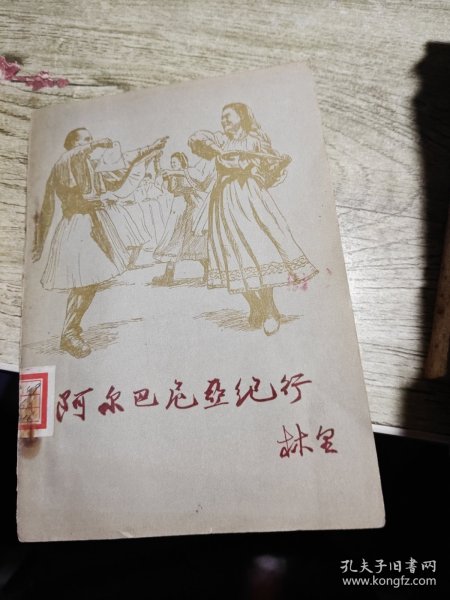 阿尔巴尼亚纪行
林里
孔夫子旧书网
www.kongfz.com